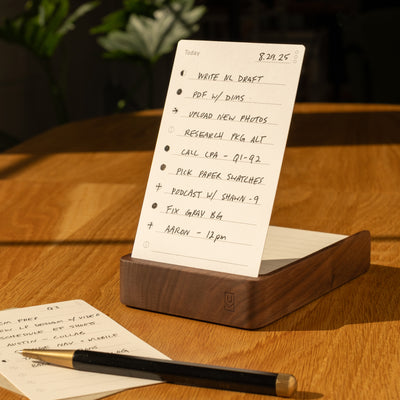 Today
8.29.25
WRITE NL DRAFT
PDF W/ DIMS
UPLOAD NEW PHOTOS
RESEARCH PKG ALT
CALL CPA - Q1-Q2
PICK PAPER SWATCHES
PODCAST W/ SHAWN - 9
FIX GRAY BG
AARON - 12pm
Q1
SCHEDULE
AUSTIN - COLLAB
NAV + MOBILE